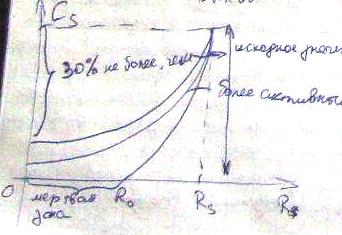 Cs
30% не более, чем
исходное значе
более активные
0
мертвая
зона
R₀
Rs
Rs